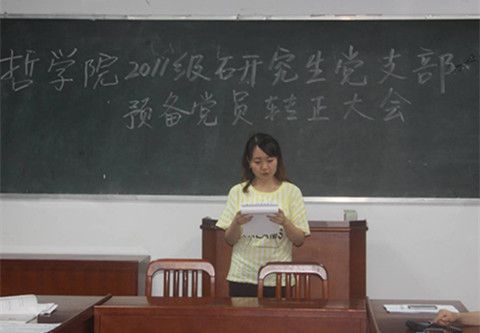 哲学院2011级研究生党支部
预备党员转正大会